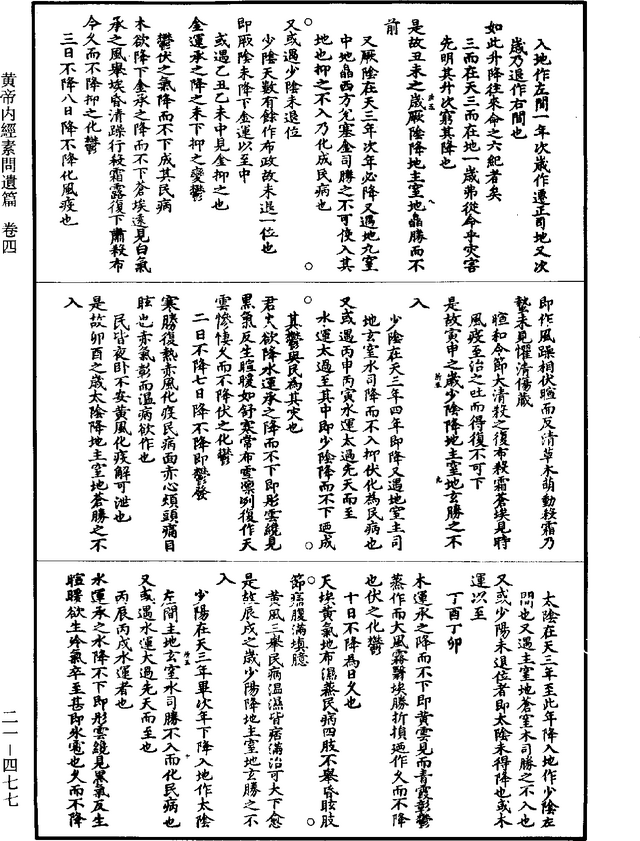 黄帝内經素問遺篇　卷四
入地作左間一年次歲作遷正司地又次
歲乃退作右間也
如此升降往來命之六紀者矣
三而在天三而在地一歲弗從命乎灾害
先明其升次窮其降也
是故丑未之歲厥陰降地主窒地皛勝而不
前
又厥陰在天三年次年必降又遇地九室
中地皛西方兌塞金司勝之不可便入其
地也抑之不入乃化成民病也
又或遇少陰未退位
少陰天數有餘作布政故未退一位也
即厥陰未降下金運以至中
或遇乙丑乙未中見金抑之也
金運承之降之未下抑之變鬱
鬱伏之氣降而不下成其民病
木欲降下金承之降而不下蒼埃遠見白氣
承之風舉埃昏清躁行殺霜露復下肅殺布
令久而不降抑之化鬱
三日不降八日降不降化風疫也
即作風躁相伏暄而反清草木萌動殺霜乃
蟄未見懼清傷藏
暄和令節大清殺之復布殺霜蒼埃見時
風疫至治之吐而得復不可下
是故寅申之歲少陰降地主窒地玄勝之不
入
少陰在天三年四年即降又遇地室主司
地玄室水司降而不入抑伏化為民病也
又或遇丙申丙寅水運太過先天而至
水運太過至其中即少陰降而不下廼成
其鬱與民為其灾也
君火欲降水運承之降而不下即彤雲纔見
黒氣反生暄暖如舒寒常布雪凛冽復作天
雲慘悽久而不降伏之化鬱
二日不降七日降不降即鬱發
寒勝復熱赤風化疫民病面赤心煩頭痛目
眩也赤氣彰而温病欲作也
民皆夜卧不安黄風化疾解可泄也
是故卯酉之歲太陰降地主窒地蒼勝之不
入
太陰在天三年至此年降入地作少陰左
間也又遇主窒地蒼室木司勝之不入也
又或少陽未退位者即太陰未得降也或木
運以至
丁酉丁卯
木運承之降而不下即黄雲見而青霞彰鬱
蒸作而大風霧翳埃勝折損廼作久而不降
也伏之化鬱
十日不降為日久也
天埃黄氣地布濕蒸民病四肢不舉昏眩肢
節痛腹滿填臆
黄風三舉民病温濕皆痞滿治可大下愈
是故辰戌之歲少陽降地主窒地玄勝之不
入
少陽在天三年畢次年下降入地作太陰
左間主地玄室水司勝不入而化民病也
又或遇水運太過先天而至也
丙辰丙戌水運者也
水運承之水降不下即彤雲纔見黒氣反生
暄暖欲生冷氣卒至甚即氷雹也久而不降
二一—四七七